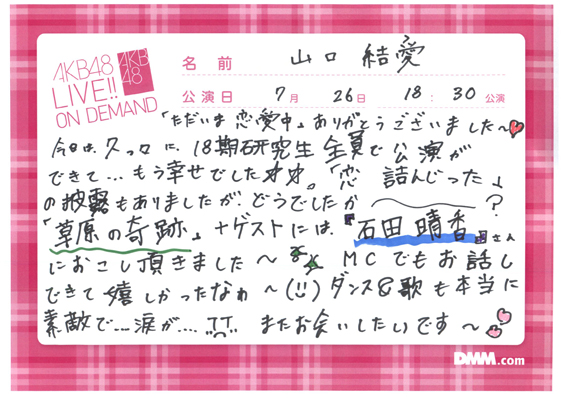 AKB48
LIVE!!
ON DEMAND
AKB
48
名前 山口 結愛
公演日 7月 26日 18:30 公演
「ただいま 恋愛中」ありがとうございました〜
今日は、久々に、18期研究生 全員で 公演が
できて…もう幸せでしたオオ。「恋 詰んじった」
の披露もありましたが、どうでしたか ?
「草原の奇跡」+ゲストには、『石田 晴香』さん
におこし頂きました〜 MCでもお話し
できて 嬉しかったなぁ 〜(!!) ダンス&歌も本当に
素敵で…、涙が…. TT またお会いしたいです〜
DMM.com